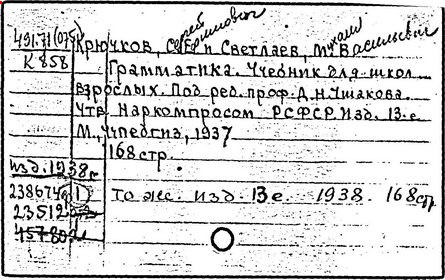 Сергей Ефимович
491.71(075) Крючков, Се и Светлаев, Михаил Васильевич
К 858 Грамматика. Учебник для школ
взрослых. Под ред. проф. Д.Н. Ушакова.
Утв. Наркомпросом РСФСР. Изд. 13-е
М., Учпедгиз, 1937
168 стр.
изд. 1938г
1 То же. Изд. 13 е. 1938. 168 стр.
23512
45780